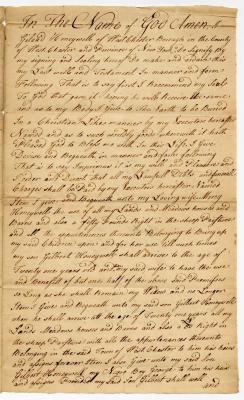 In The Name of God Amen I
Gilead Honeywell of West Chester Borough in the County
of West Chester and Province of New York, Do Signify By
my signing and Sealing hereof Do make and ordain this
my Last will and Testament In manner and form
Following That is to say first I Recommend my Soule
To God that gave it hoping he will receive the same
and as to my Body I Give to the Earth to be Buried
In a Christian Like manner by my Executors hereafter
Named and as to such worldly goods wherewith it hath
Pleased God to Bless me with In this Life I Give
Devise and Bequeath in manner and form following
That is to say Imprimis it is my will and
order and Direct that all my Lawfull Debts and funeral
Charges shall be Paid by my Executors hereafter Named
Item I give and Bequeath unto my Loving wife
Honeywell the use of all my Lands and Meadows houses and
Barns and also a fifty Pound Right in the sheep Pasture
and all the appurtenances thereunto Belonging to Bring up
my said Children upon and for her use till such time as
my son Gilbert Honeywell shall arrive to the age of
Twenty one years old and my said wife to have the use
and Benefit of but one half of the above said Premises
so Long as she shall Remain my Widow and no Longer
Item I Give and Bequeath unto my said son Gilbert Honeywell
when he shall arrive at the age of Twenty one years all my
Lands Meadows houses and Barns and also a Right in
the sheep Pasture with all the appurtenances thereunto
Belonging in the said Town of West Chester to him his heirs
and assigns forever Item I also Give unto my said son
Gilbert Honeywell my Negro Boy George to him his heirs
and assigns Provided my said Son Gilbert shall well
and